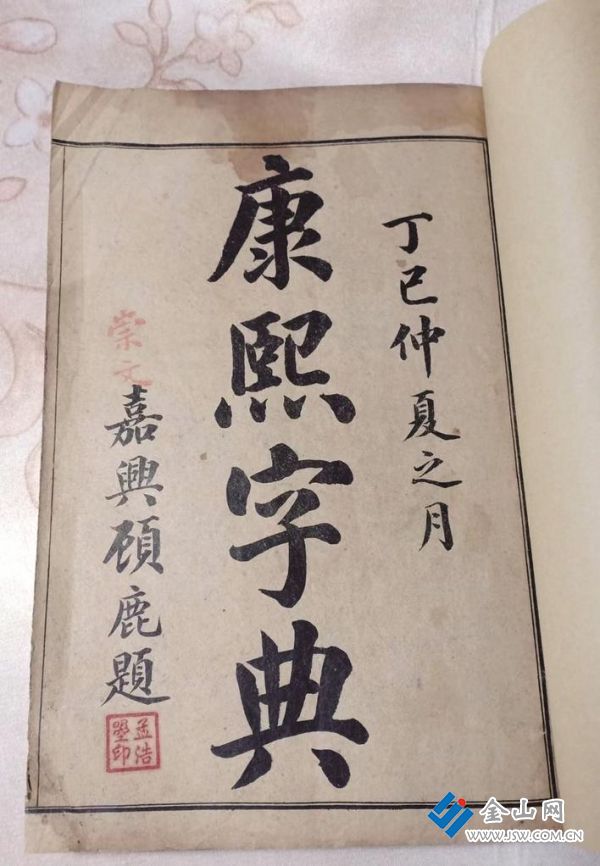 丁巳仲夏之月
康熙字典
崇文
嘉興顧鹿題
孟浩
墨印
金山网
WWW.JSW.COM.CN